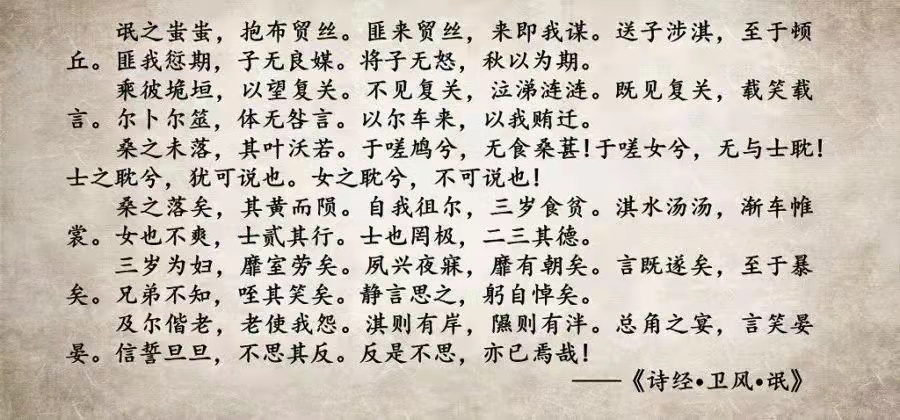 氓之蚩蚩，抱布贸丝。匪来贸丝，来即我谋。送子涉淇，至于顿
丘。匪我愆期，子无良媒。将子无怒，秋以为期。
乘彼垝垣，以望复关。不见复关，泣涕涟涟。既见复关，载笑载
言。尔卜尔筮，体无咎言。以尔车来，以我贿迁。
桑之未落，其叶沃若。于嗟鸠兮，无食桑葚！于嗟女兮，无与士耽！
士之耽兮，犹可说也。女之耽兮，不可说也！
桑之落矣，其黄而陨。自我徂尔，三岁食贫。淇水汤汤，渐车帷
裳。女也不爽，士贰其行。士也罔极，二三其德。
三岁为妇，靡室劳矣。夙兴夜寐，靡有朝矣。言既遂矣，至于暴
矣。兄弟不知，咥其笑矣。静言思之，躬自悼矣。
及尔偕老，老使我怨。淇则有岸，隰则有泮。总角之宴，言笑晏
晏。信誓旦旦，不思其反。反是不思，亦已焉哉！
——《诗经•卫风•氓》